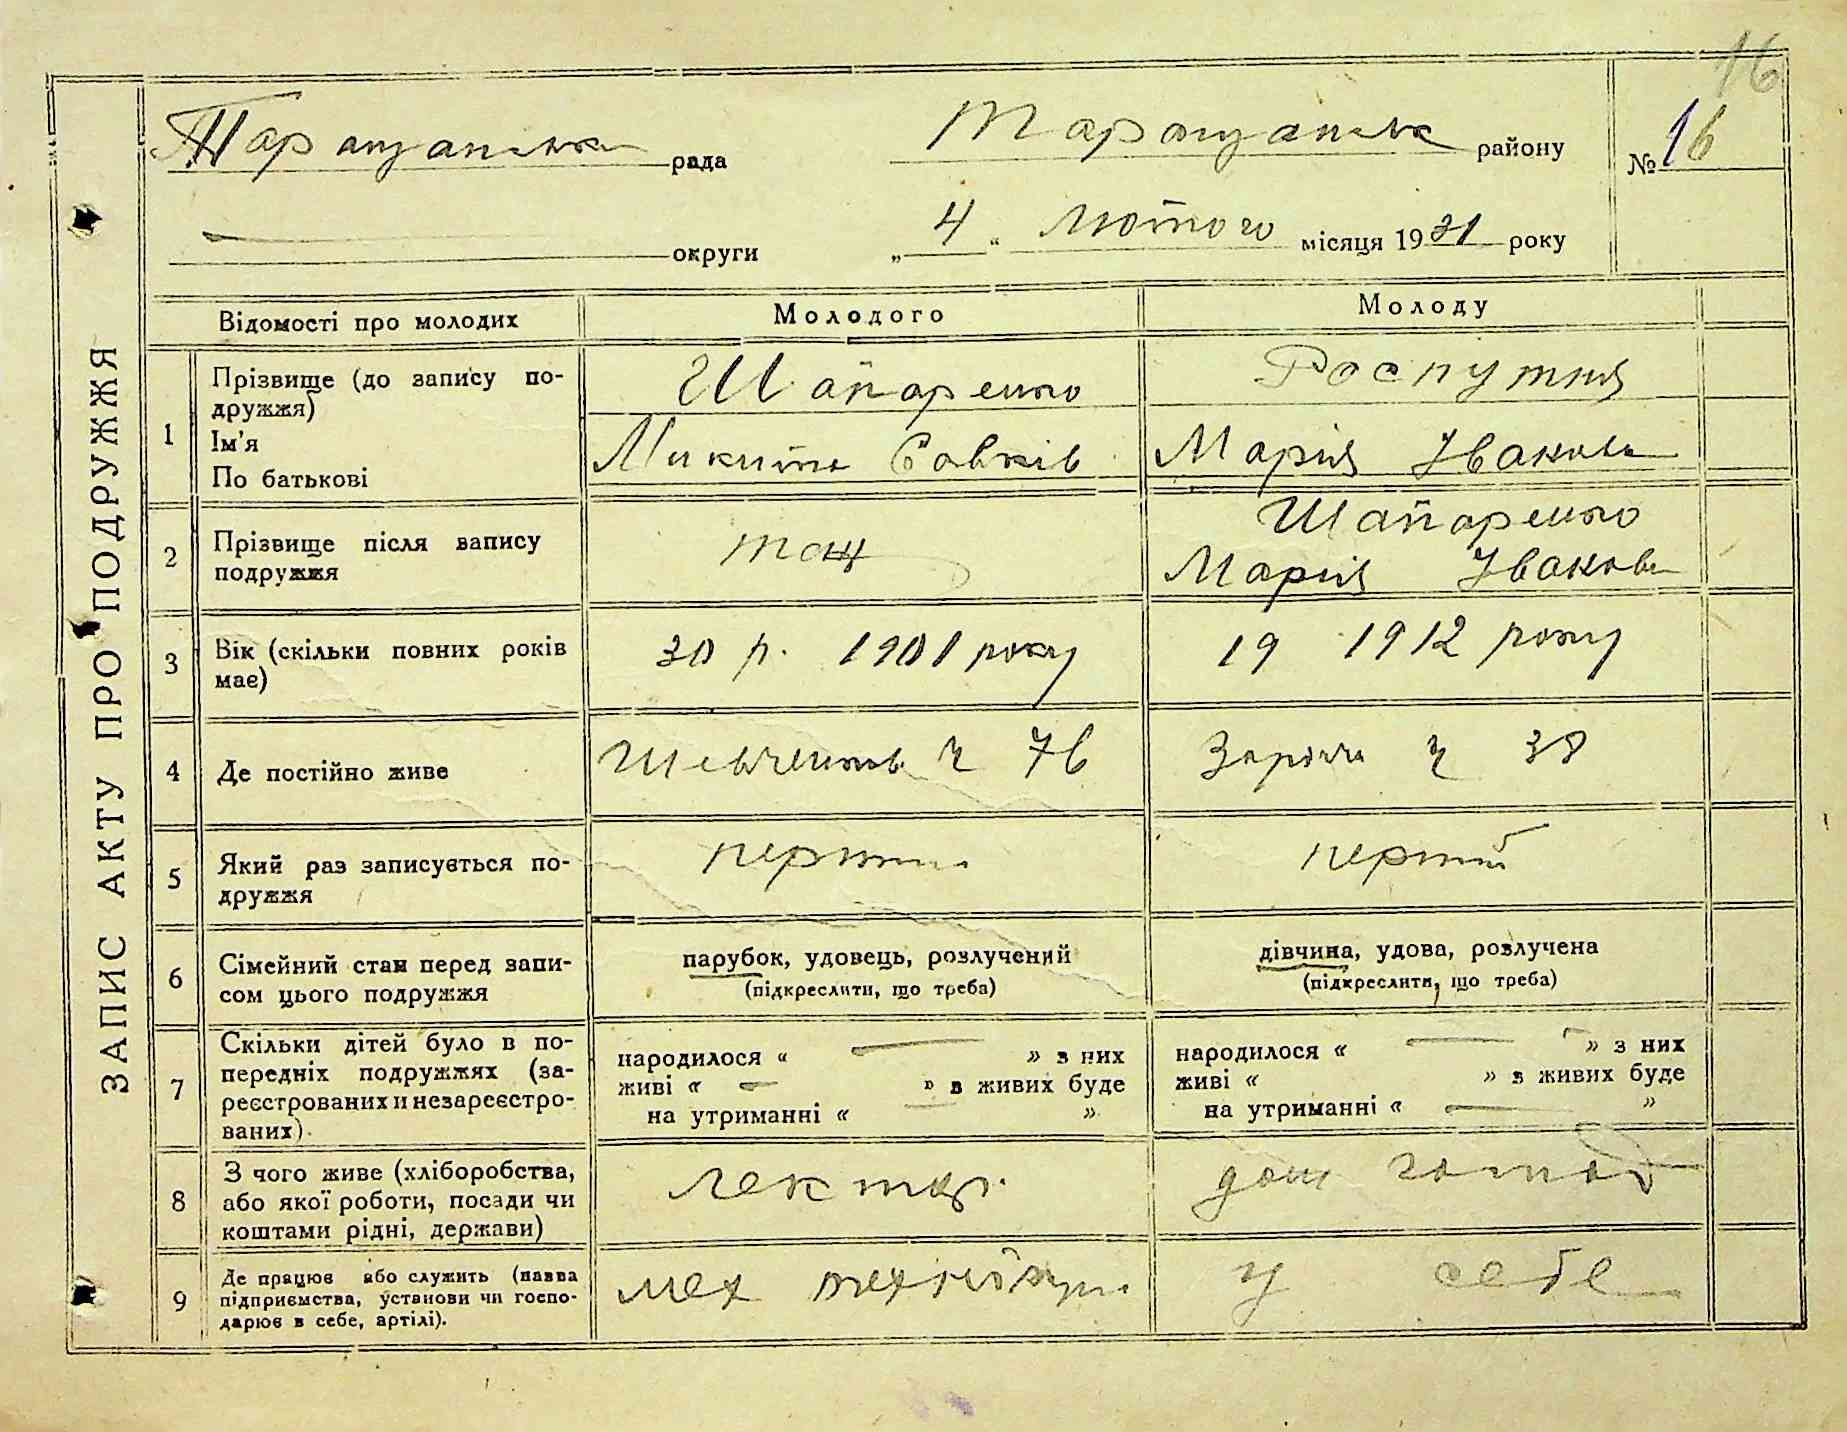 16
Таращанська рада Таращанськ району № 16
округи „ 4 “ Лютого місяця 1931 року
ЗАПИС АКТУ ПРО ПОДРУЖЖЯ
Відомості про молодих Молодого Молоду
1 Прізвище (до запису по-
дружжя)
Ім'я
По батькові
Шапаренко
Микита Савків
Роспутня
Марія Іванова
2 Прізвище після запису
подружжя
тощ
Шапаренко
Марія Іванова
3 Вік (скільки повних років
має)
30 р. 1901 року
19 1912 року
4 Де постійно живе
Шевченків ч 76
Заріччя ч 38
5 Який раз записується по-
дружжя
перший
перший
6 Сімейний стан перед запи-
сом цього подружжя
парубок, удовець, розлучений
(підкреслити, що треба)
дівчина, удова, розлучена
(підкреслити, що треба)
7 Скільки дітей було в по-
передніх подружжях (за-
реєстрованих и незареєстро-
ваних).
народилося « » з них
живі « » з живих буде
на утриманні « »
народилося « » з них
живі « » з живих буде
на утриманні « »
8 З чого живе (хліборобства,
або якої роботи, посади чи
коштами рідні, держави)
лектор
дом господ
9 Де працює або служить (назва
підприємства, установи чи госпо-
дарює в себе, артілі).
мех технікум
у себе